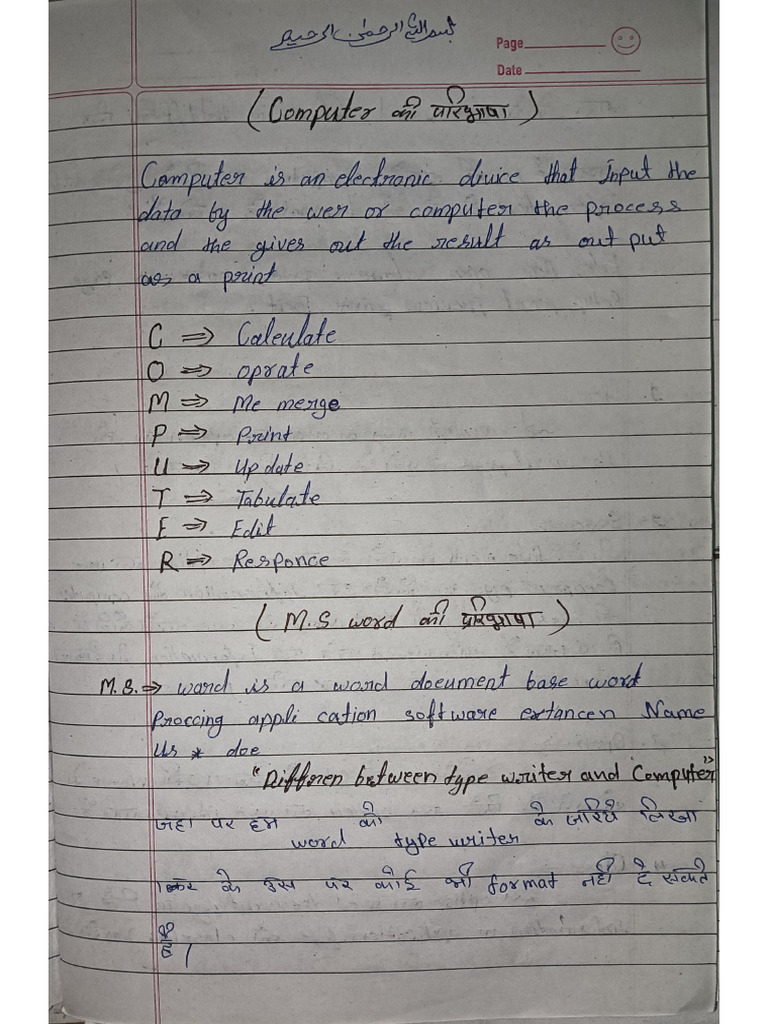 بسم اللہ الرحمٰن الرحیم
Page
Date
(Computer की परिभाषा)
Computer is an electronic divice that Input the
data by the wer or computer the process
and the gives out the result as out put
as a print
C ⇒ Calculate
O ⇒ oprate
M ⇒ Me merge
P ⇒ Print
U ⇒ Up date
T ⇒ Tabulate
E ⇒ Edit
R ⇒ Responce
(M.S word की परिभाषा)
M.S.⇒ word is a word document base word
Proccing appli cation software extancen Name
us * doe
"Differen between type writer and Computer"
जहा पर हम word को type writer के जरिये लिखा
कर के उस पर कोई भी format नहीं दे सकते